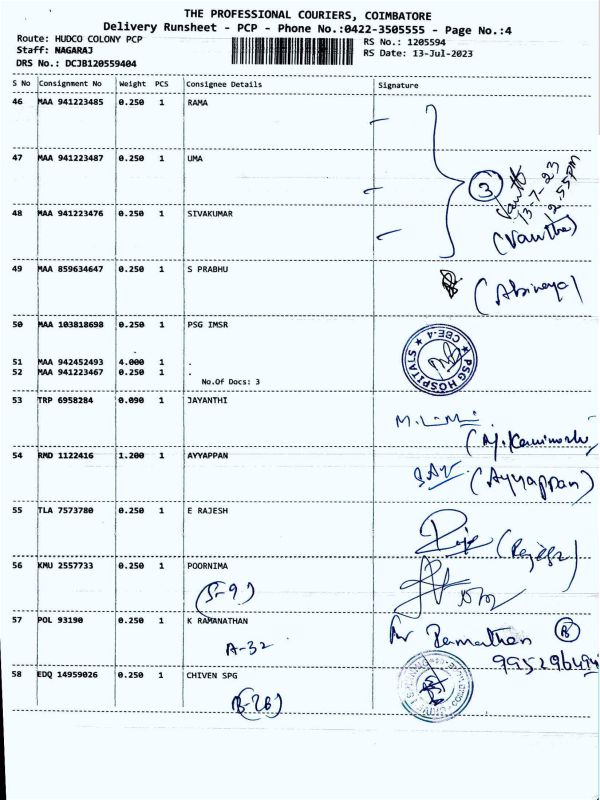 THE PROFESSIONAL COURIERS, COIMBATORE
Delivery Runsheet - PCP - Phone No.:0422-3505555 - Page No.:4
Route: HUDCO COLONY PCP
RS No.: 1205594
Staff: NAGARAJ
RS Date: 13-Jul-2023
DRS No.: DCJB120559404
S No Consignment No Weight PCS Consignee Details Signature
46 MAA 941223485 0.250 1 RAMA
47 MAA 941223487 0.250 1 UMA
3
13-7-23
2.55PM
48 MAA 941223476 0.250 1 SIVAKUMAR
(Vanitha)
49 MAA 859634647 0.250 1 S PRABHU
(Abinaya)
50 MAA 103818698 0.250 1 PSG IMSR
PSG HOSPITALS ★ CBE-4 ★
51 MAA 942452493 4.000 1 .
52 MAA 941223467 0.250 1 .
No.Of Docs: 3
53 TRP 6958284 0.090 1 JAYANTHI
54 RMD 1122416 1.200 1 AYYAPPAN
(Ayyappan)
55 TLA 7573780 0.250 1 E RAJESH
(Rajesh)
56 KMU 2557733 0.250 1 POORNIMA
57 POL 93190 0.250 1 K RAMANATHAN
A-32
58 EDQ 14959026 0.250 1 CHIVEN SPG